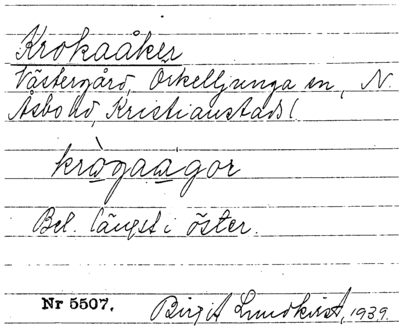 Krokaåker
Västergård, Örkelljunga sn, N.
Åsbo hd, Kristianstads l.
krògaágor
Bel. längst i öster.
Nr 5507. Birgit Lundkvist, 1939.